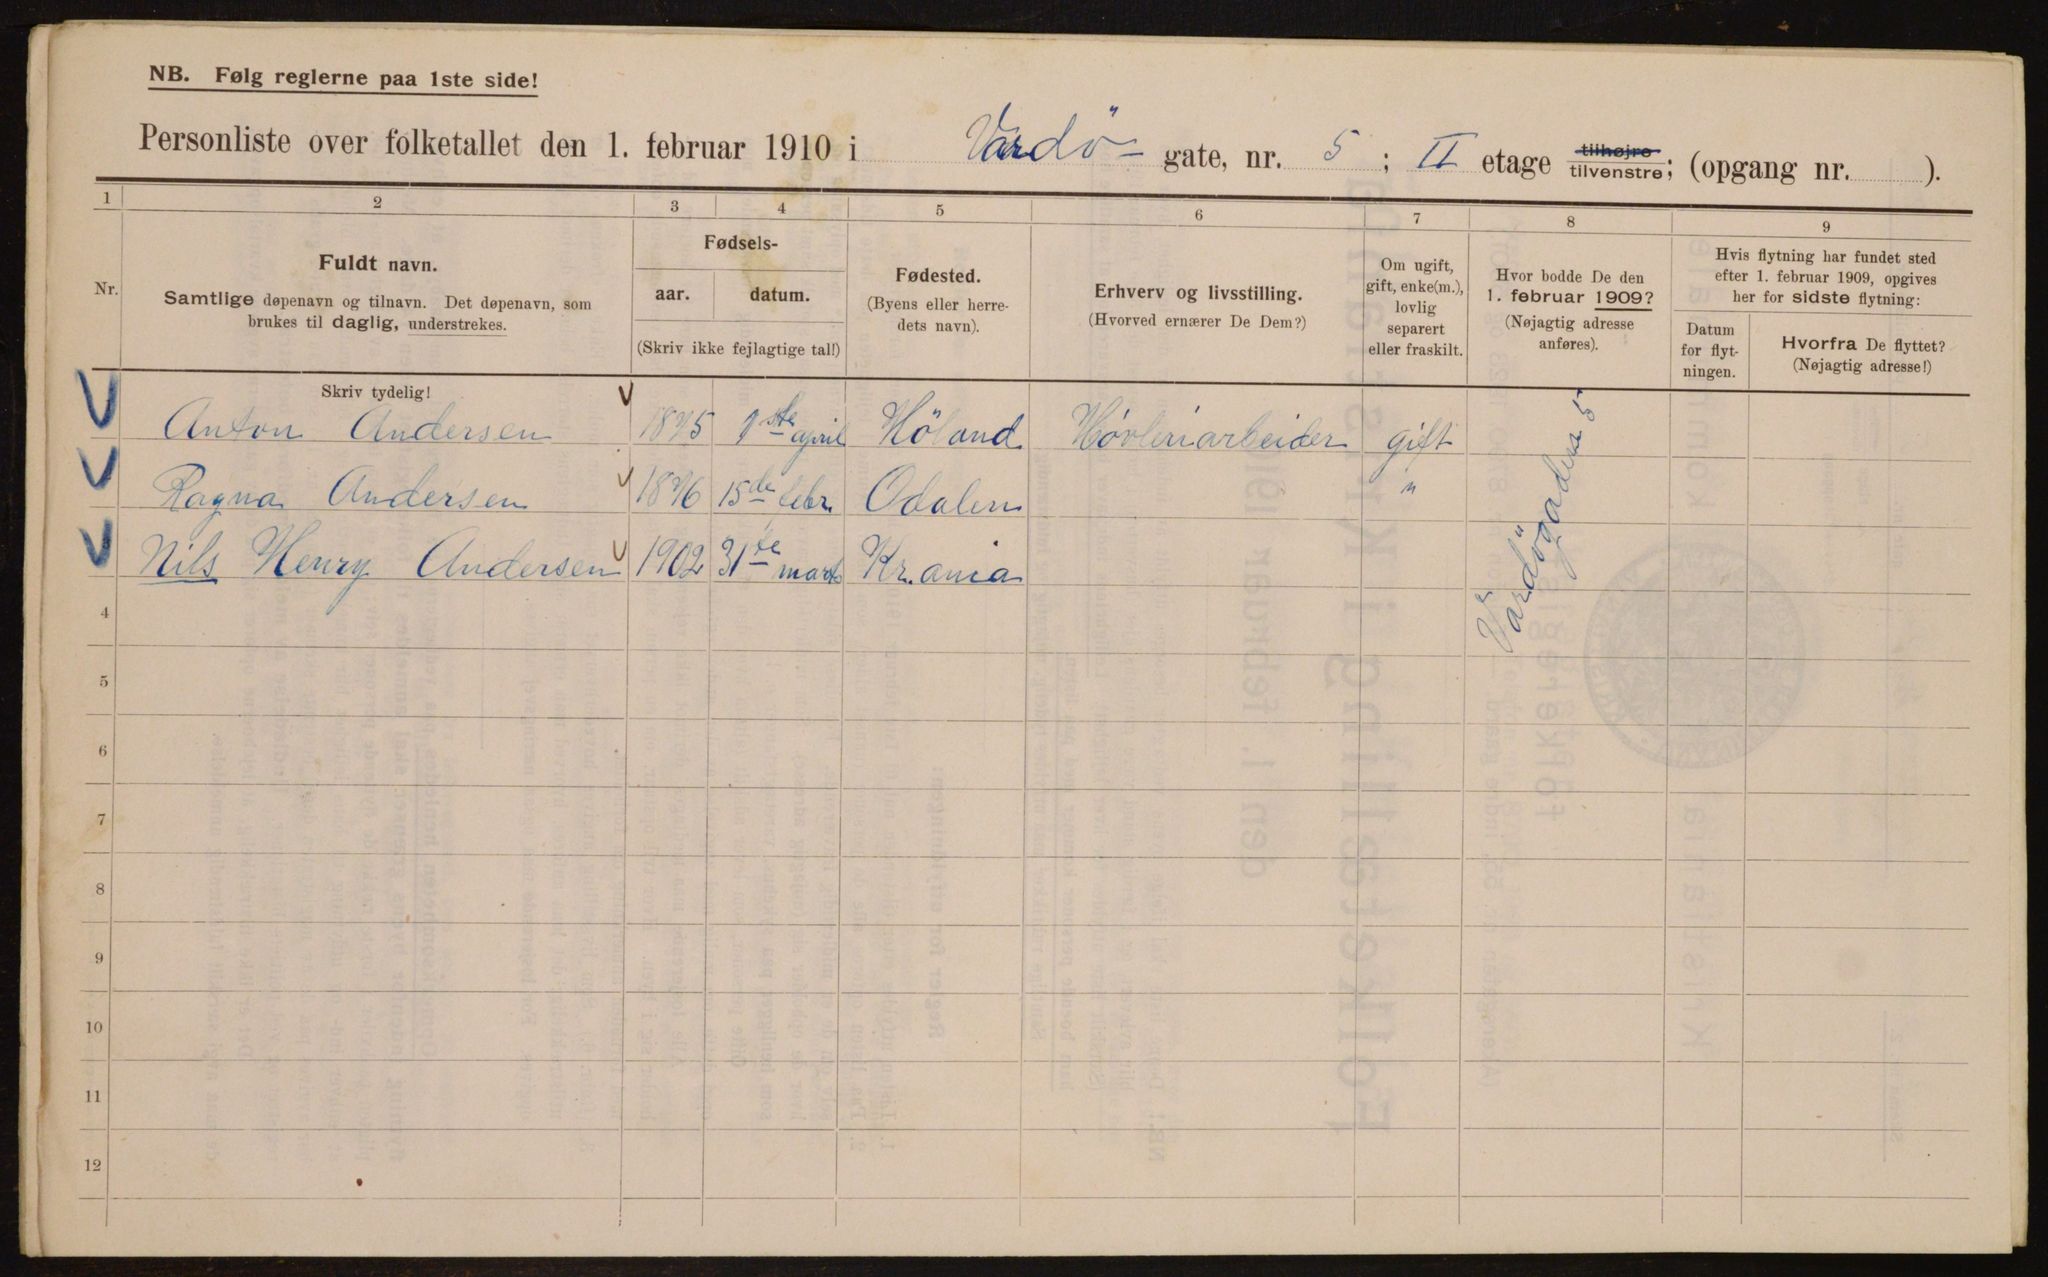 NB. Følg reglerne paa 1ste side!
Personliste over folketallet den 1. februar 1910 i Vardö- gate, nr. 5 ; II etage tilhøjre/tilvenstre; (opgang nr. ).
1 2 3 4 5 6 7 8 9
Nr.
Fuldt navn.
Samtlige døpenavn og tilnavn. Det døpenavn, som
brukes til daglig, understrekes.
Fødsels-
aar. datum.
(Skriv ikke fejlagtige tal!)
Fødested.
(Byens eller herre-
dets navn).
Erhverv og livsstilling.
(Hvorved ernærer De Dem?)
Om ugift,
gift, enke(m.),
lovlig
separert
eller fraskilt.
Hvor bodde De den
1. februar 1909?
(Nøjagtig adresse
anføres).
Hvis flytning har fundet sted
efter 1. februar 1909, opgives
her for sidste flytning:
Datum
for flyt-
ningen.
Hvorfra De flyttet?
(Nøjagtig adresse!)
Skriv tydelig!
Anton Andersen 1875 1ste april Höland Hövleriarbeider gift
Ragna Andersen 1876 15de febr. Odalen "
Nils Henry Andersen 1902 31te marts Kr.ania
Vardögaden 5
4
5
6
7
8
9
10
11
12